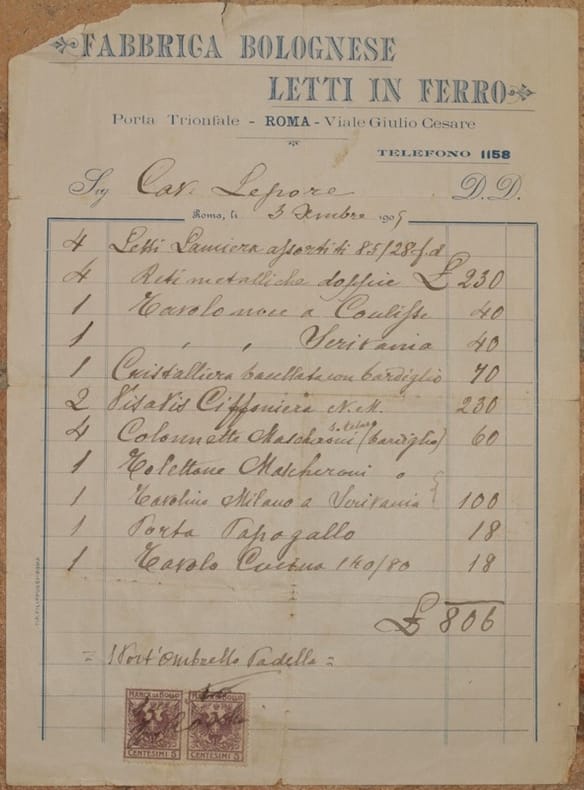 FABBRICA BOLOGNESE
LETTI IN FERRO
Porta Trionfale - ROMA - Viale Giulio Cesare
TELEFONO 1158
Sig Cav. Lepore D. D.
Roma, li 3 1905
4 Letti Lamiera assortiti 85/28 f.d
4 Reti metalliche doppie £ 230
1 Tavolo noce a Coulisse 40
1 " " Scrivania 40
1 Cristalliera baccellata con bardiglio 70
2 Visavis Ciffoniera N. M. 230
4 Colonnette Mascheroni (bardiglio) 60
1 Tolettone Mascheroni
1 Tavolino Milano a Scrivania 100
1 Porta Papagallo 18
1 Tavolo Cucina 140/80 18
£ 806
= 1 Port'Ombrello Padella =
MARCA DA BOLLO MARCA DA BOLLO
CENTESIMI 5 CENTESIMI 5